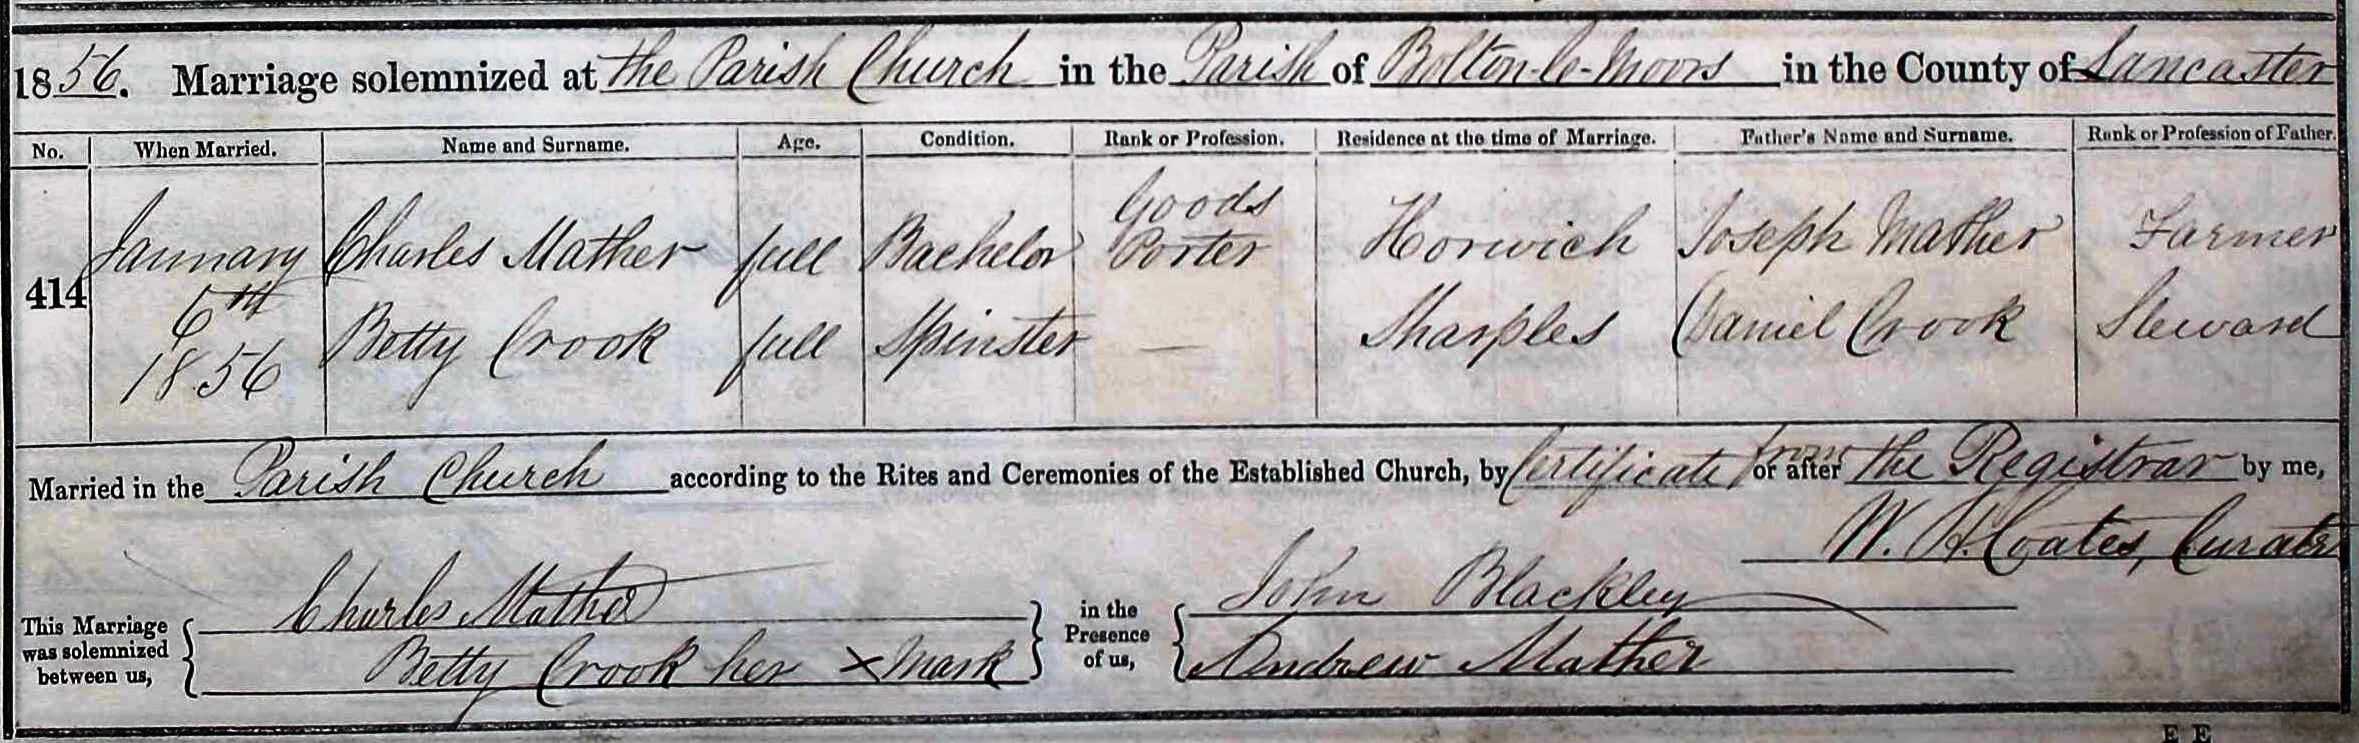 1856. Marriage solemnized at the Parish Church in the Parish of Bolton-le-Moors in the County of Lancaster
No. When Married. Name and Surname. Age. Condition. Rank or Profession. Residence at the time of Marriage. Father's Name and Surname. Rank or Profession of Father.
414 January 6th 1856 Charles Mather full Bachelor Goods Porter Horwich Joseph Mather Farmer
Betty Crook full Spinster — Sharples Daniel Crook Steward
Married in the Parish Church according to the Rites and Ceremonies of the Established Church, by Certificate from or after the Registrar by me,
W. H. Coates, Curate
This Marriage was solemnized between us, Charles Mather
Betty Crook her X Mark
in the Presence of us, John Blackley
Andrew Mather
E E